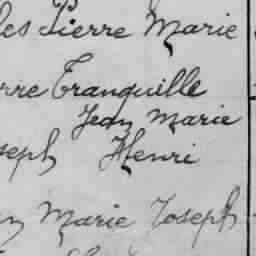 les Pierre Marie
rre Tranquille
Jean Marie
seph Henri
n Marie Joseph